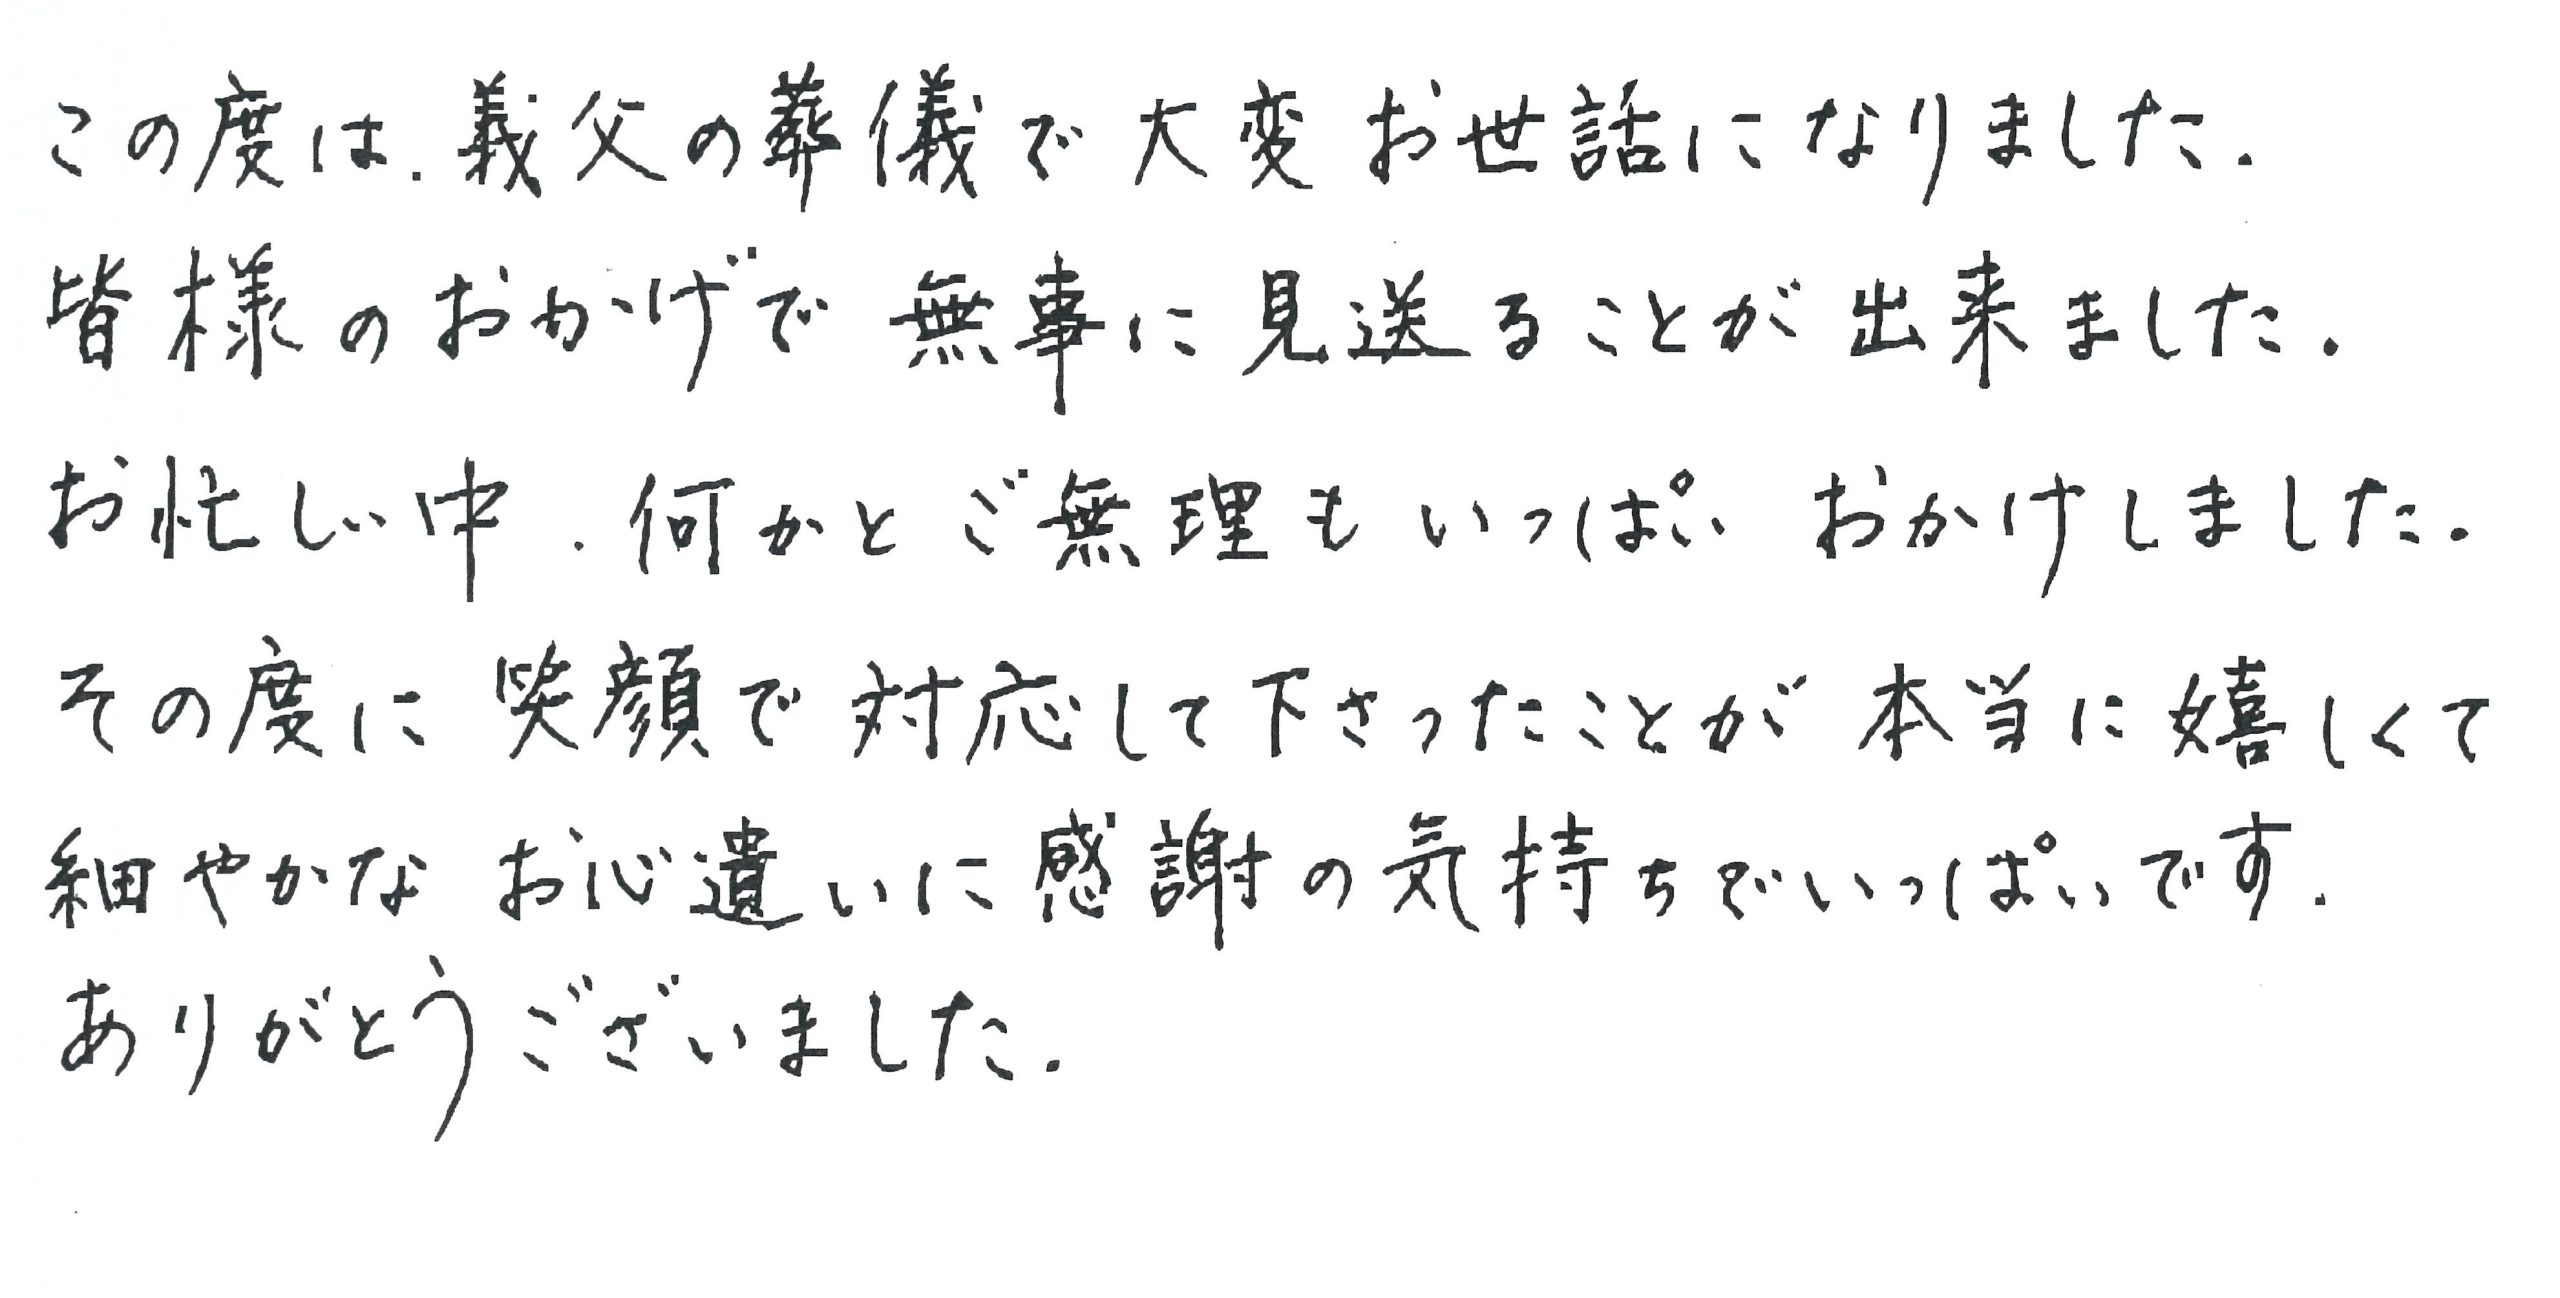 この度は、義父の葬儀で大変お世話になりました。
皆様のおかげで無事に見送ることが出来ました。
お忙しい中、何かとご無理もいっぱいおかけしました。
その度に笑顔で対応して下さったことが本当に嬉しくて
細やかなお心遣いに感謝の気持ちでいっぱいです。
ありがとうございました。